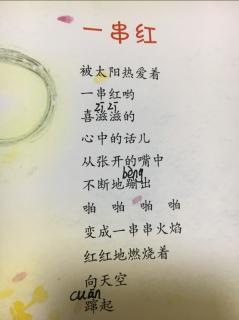 一串红
被太阳热爱着
一串红哟
zī zī
喜滋滋的
心中的话儿
从张开的嘴中
bèng
不断地蹦出
啪 啪 啪 啪
变成一串串火焰
红红地燃烧着
向天空
cuān
蹿起